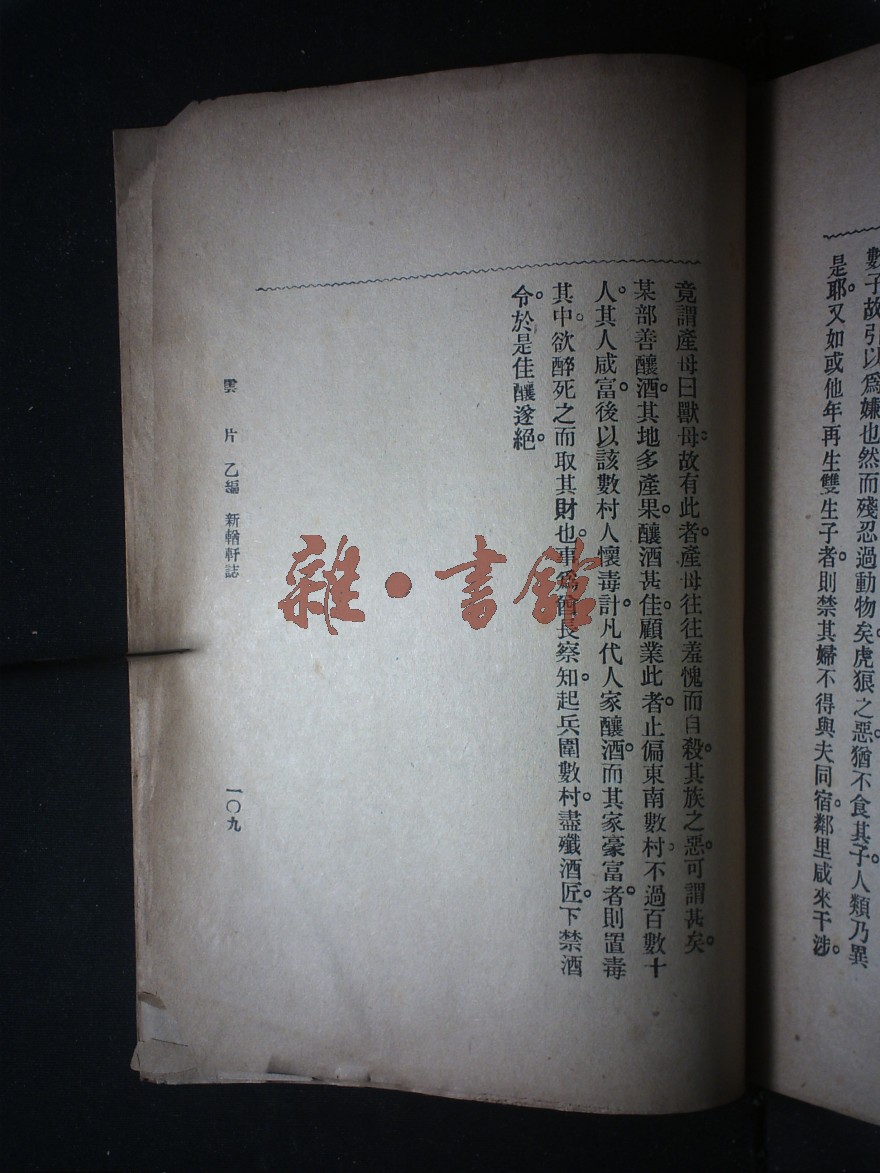 數子故引以爲嫌也然而殘忍過動物矣。虎狠之惡。猶不食其子。人類乃異
是耶。又如或他年再生雙生子者。則禁其婦不得與夫同宿。鄰里咸來干涉。
竟謂產母曰獸母。故有此者。產母往往羞愧而自殺。其族之惡。可謂甚矣。
某部善釀酒。其地多產果。釀酒甚佳。顧業此者。止偏東南數村。不過百數十
人。其人咸富。後以該數村人懷毒計。凡代人家釀酒。而其家豪富者。則置毒
其中。欲醉死之而取其財也。事爲酋長察知。起兵圍數村。盡殲酒匠。下禁酒
令。於是佳釀遂絕。
雲片 乙編 新輶軒誌
一〇九
雜·書館